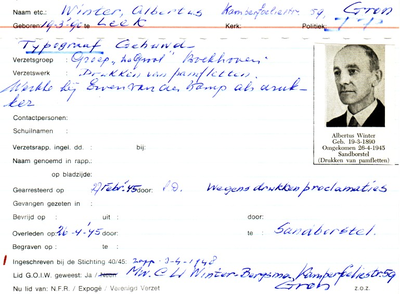 Naam etc.: Winter, Albertus Kamperfoeliestr 59, Gron
Geboren 19-3-90 te Leek Kerk: Politiek:
Typograaf Gehuwd
Verzetsgroep: Groep "de Groot"
Verzetswerk Drukken van pamfletten.
Werkte bij Erven van der Kamp als druk-
ker
Contactpersonen:
Schuilnaam :
Verzetsrapp. ingel. dd. : bij:
Naam genoemd in rapp.:
op bladzijde:
Albertus Winter
Geb. 19-3-1890
Omgekomen 26-4-1945
Sandborstel
(Drukken van pamfletten)
Gearresteerd op Febr. '45 door: S.D. wegens drukken proclamaties
Gevangen gezeten in :
Bevrijd op : uit : door:
Overleden op: 26-4-'45 door: te: Sandborstel.
Begraven op : te :
Ingeschreven bij de Stichting 40/45: rapp. 1948
Lid G.O.I.W. geweest: Ja / Neen Mw. Winter-Bergsma, Kamperfoeliestr. 59
Gron
Nu lid van: N.F.R. / Expogé / Verenigd Verzet z.o.z.